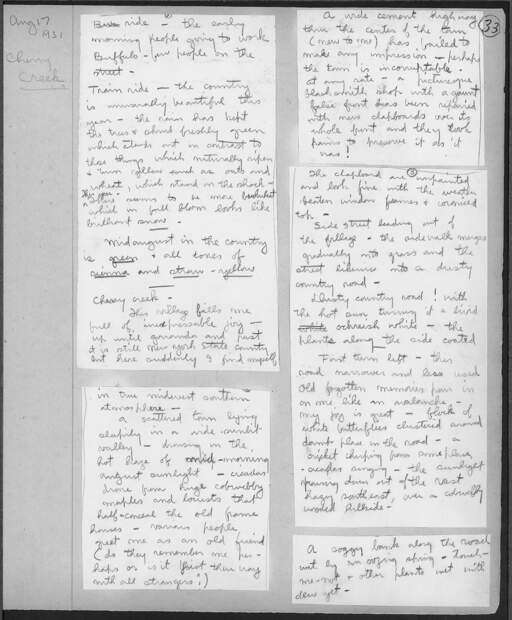 Aug 17
1931
Cherry
Creek
33
Bus ride - the early
morning people going to work
Buffalo - few people on the
street -
Train ride - the country
is unusually beautiful this
year - the rain has kept
the trees & cloud freshly green
which stands out in contrast to
those things which naturally ripen
& turn yellow such as oats and
wheat, which stand in the shock -
There seems to be more buckwheat
which in full bloom looks like
brilliant snow -
Mid august in the country
is green & all tones of
sienna and straw-yellow
Cherry Creek -
This village fills me
full of inexpressable joy -
up until Gowanda and past
it is still New York state county
but here suddenly I find myself
in true midwest southern
atmosphere -
A scattered town lying
sleepily in a wide sunlit
valley - drowsing in the
hot blaze of mid-morning
august sunlight - cicadas
drone from huge cobwebby
maples and locusts that
half-conceal the old frame
houses - various people
greet me as an old friend
(do they remember me per-
haps or is it their way
with all strangers?)
A wide cement highway
thru the center of the town
(new to me) has failed to
make any impression - perhaps
the town is incorruptable -
at any rate - a picturesque
blacksmith shop with a gaunt
false front has been repaired
with new clapboards over its
whole front and they took
pains to preserve it as it
was!
The clapboard are unpainted
and look fine with the weather
beaten window frames & corniced
top -
Side street leading out of
the village - the sidewalk merges
gradually into grass and the
street likewise into a dusty
country road -
Dusty country road! with
the hot sun turning it a livid
white ochreish white - the
plants along the side coated
First turn left - this
road narrower and less used
Old forgotten memories pour in
on me like an avalanche -
my joy is great - flock of
white butterflies clustered around
damp place in the road - a
cricket chirping from someplace,
cicadas singing - the sunlight
pouring down out of the vast
hazy southeast, over a cobwebby
wooded hillside -
A soggy bank along the road
wet by an oozing spring - touch-
me-not & other plants wet with
dew yet -